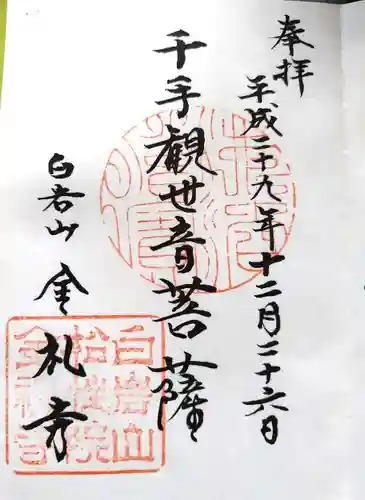 奉拝
平成二十九年十二月二十六日
千手観世音菩薩
白岩山
金札寺
白岩山
松陽院
金札寺